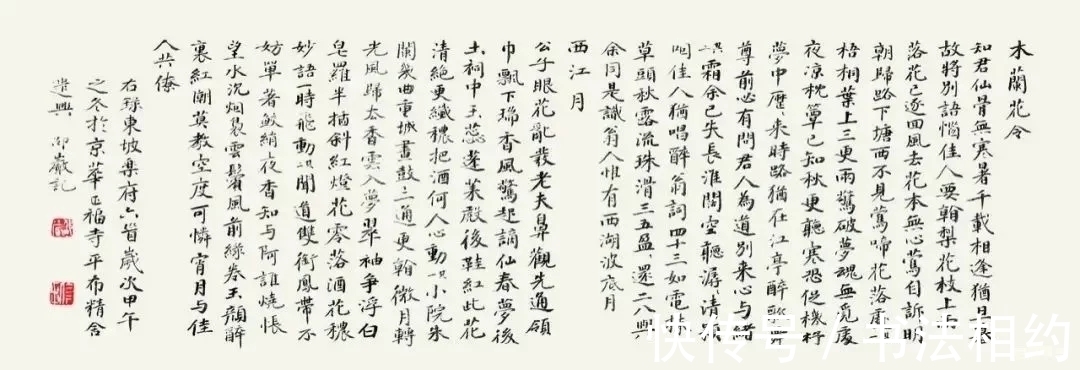 木蘭花令
知君仙骨無寒暑千載相逢猶旦暮
故將別語惱佳人要看梨花枝上
落花已逐迴風去花本無心鶯自訴明
朝歸路下塘西不見鶯啼花落處
梧桐葉上三更雨驚破夢魂無覓處
夜涼枕簟已知秋更聽寒蛩促機杼
夢中歷歷來時路猶在江亭醉歌舞
尊前必有問君人為道別來心與緒
又霜余已失長淮闊空聽潺潺清
咽佳人猶唱醉翁詞四十三如電
草頭秋露流珠滑三五盈盈還二八與
余同是識翁人惟有西湖波底月
西江月
公子眼花亂發老夫鼻觀先通領
巾飄下瑞香風驚起謫仙春夢後
土祠中玉蕊蓬萊殿後鞓紅此花
清絕更纖穠把酒何人心動又小院朱
闌幾曲重城畫鼓三通更看微月轉
光風歸去香雲入夢翠袖爭浮白
皂羅半插斜紅燈花零落酒花穠
妙語一時飛動又聞道雙銜鳳帶不
妨單著鮫綃夜香知與阿誰燒悵
望水沉烟裊雲鬢風前綠卷玉顏醉
裏紅潮莫教空度可憐宵月與佳
人共僚
右錄東坡樂府六首歲次甲午
之冬於京華正福寺平布精舍
遣興 印巖記
快传号 / 书法相约